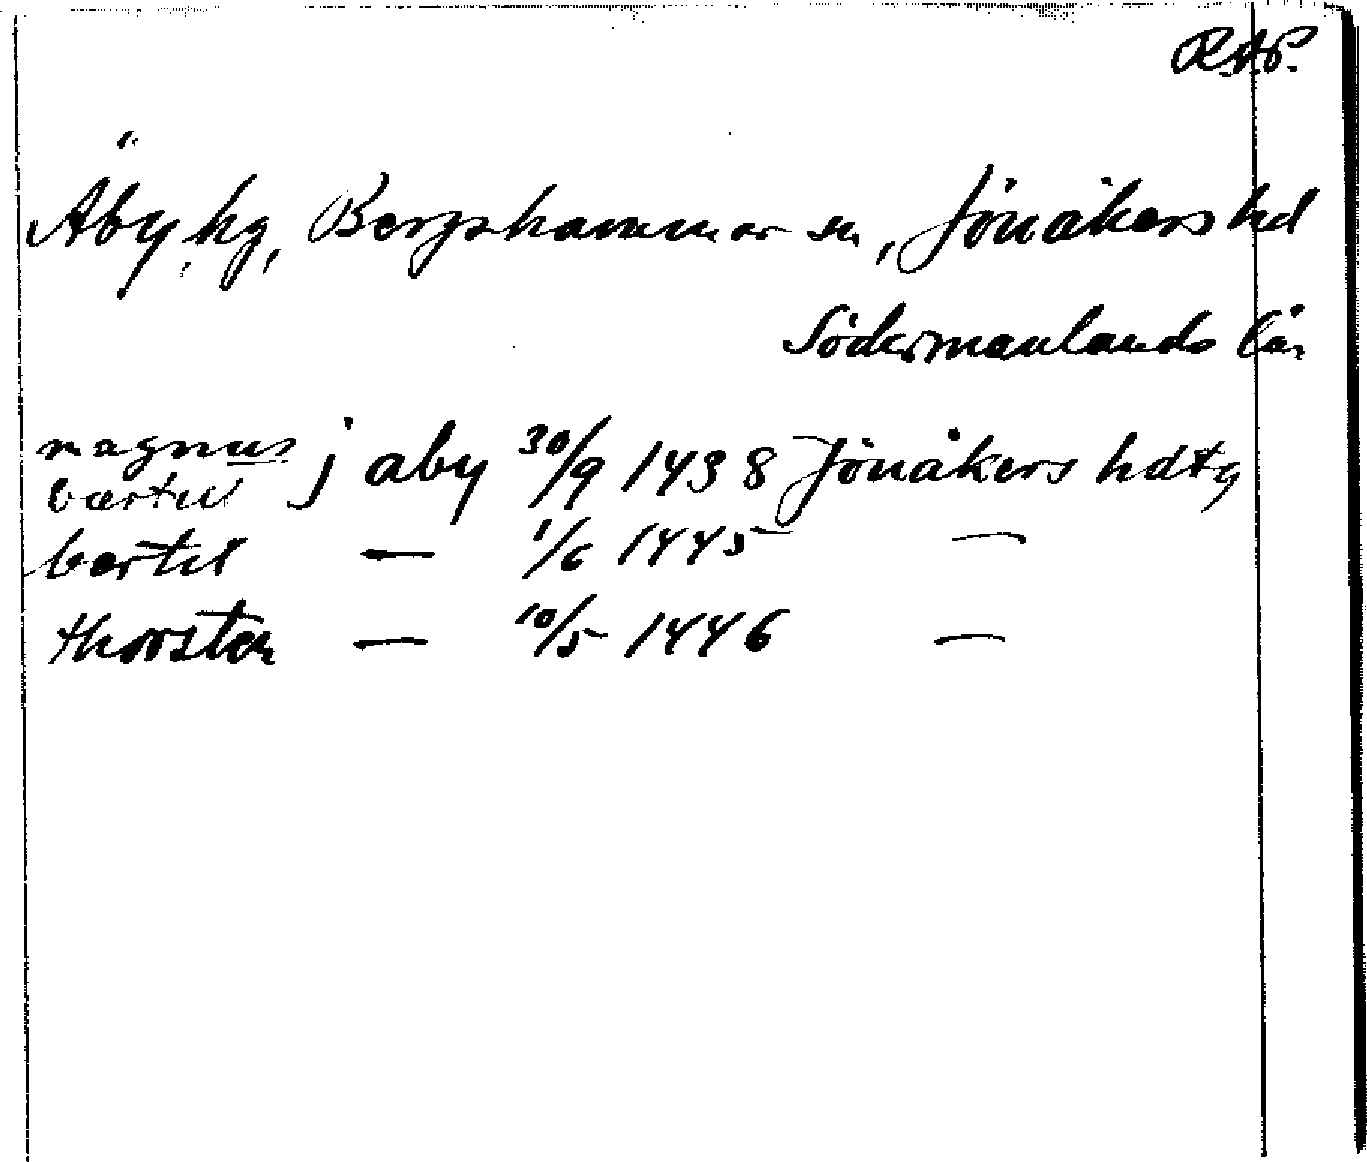 RAP.
Åby, hg, Bergshammar sn, Jönåkers hd
Södermanlands län
magnus j aby 30/9 1438 Jönåkers hdtg
bærtil
bertil — 1/6 1445 —
thorsten — 10/5 1446 —